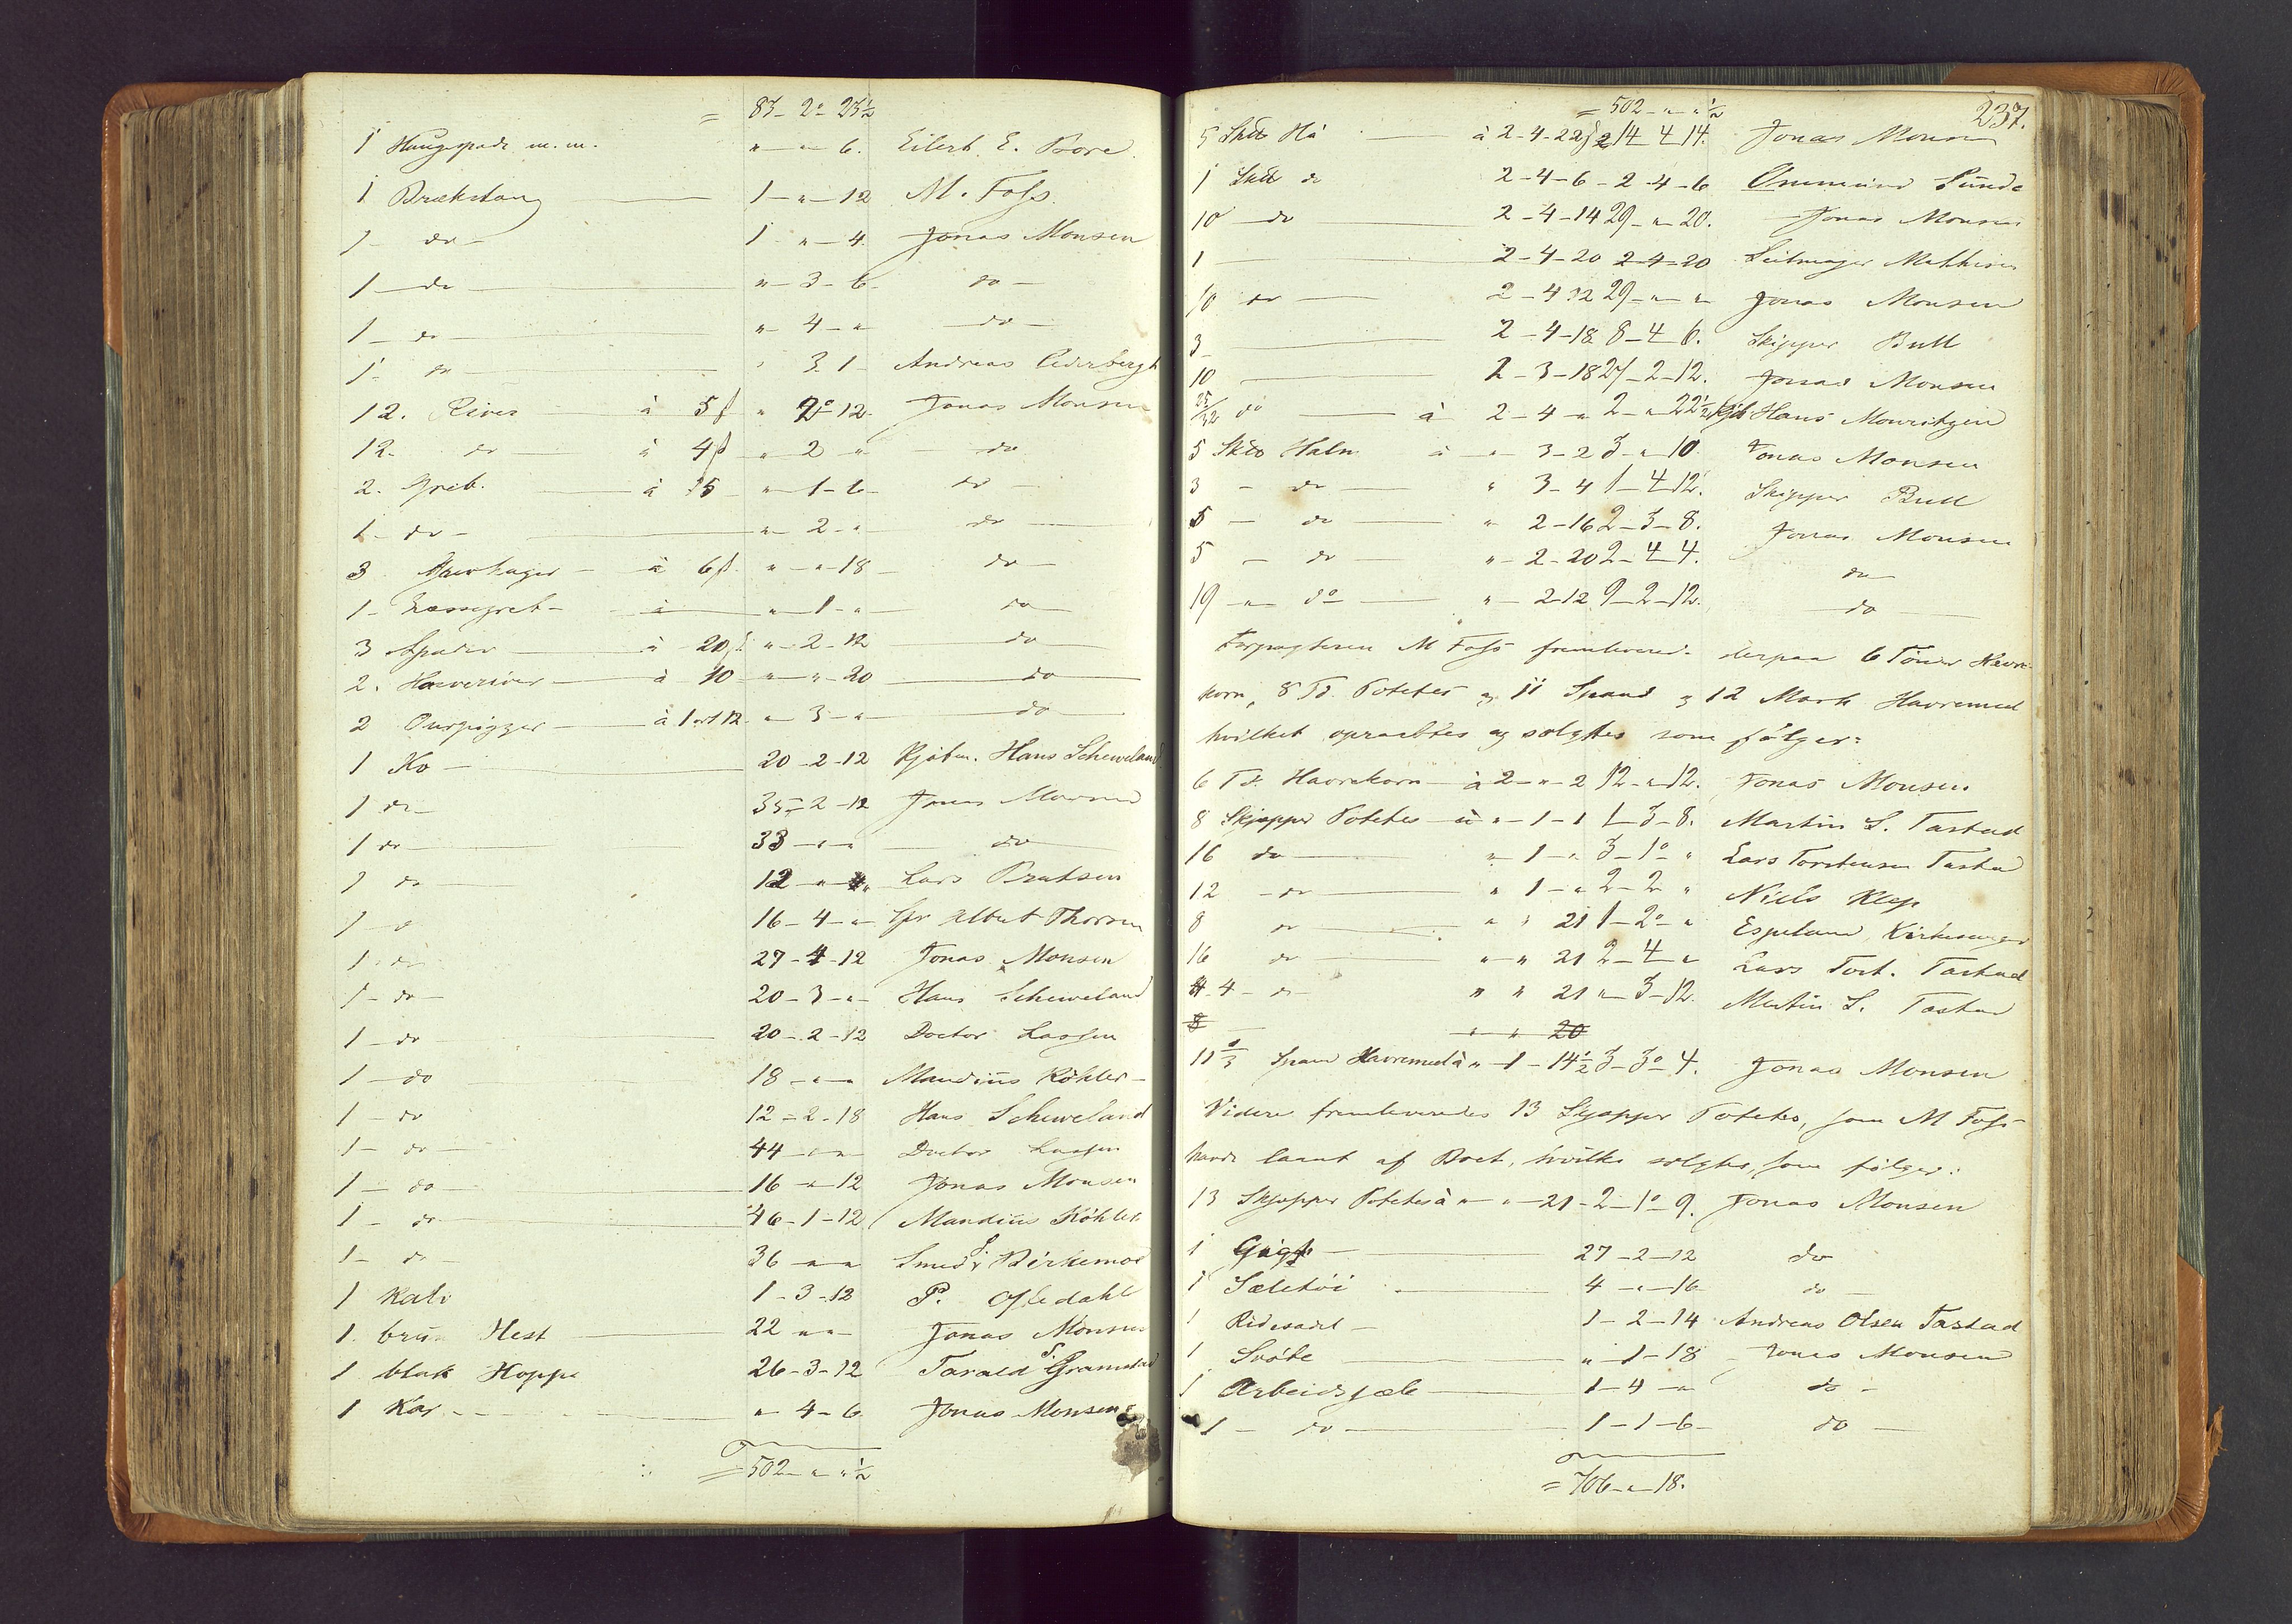 = 83 - 2 - 23½
1 Haugespade m.m. " - " 6. Eilert E. Bore
1 Brækstang 1 - " - 12 M. Foss.
1 - do - 1 - " - 4. Jonas Monsen
1 - do " - 3 - 6 - do -
1 - do " - 4 - " - do -
1 - do " 3 - 1 - Andreas Cederbergh
12. River à 5 ß " 2 - 12. Jonas Monsen
12. do à 4 ß - " - 2 - " - do
2. Greb. à 15 - " - 1 - 6 - do -
1 - do - " - 2 - " - do
3 - à 6 ß " - " - 18 - do -
1 - Læssegreb - à " - 1 - " do
3 Spader à 20 ß " - 2 - 12 do
2. Haveriver à 10 " - " - 20 do
2 à 1 ort 12. " - 3 - " do
1 Ko 20 - 2 - 12 Kjøbm. Hans Scheveland
1 do 35 - 2 - 12 Jonas Monsen
1 do 33 - " - " do
1 do 12 - " - " Lars Bratsen
1 - do 16 - 4 - " - Albert Thorsen
1 - do 27 - 4 - 12 Jonas Monsen
1 - do - 20 - 3 - " - Hans Scheveland
1 - do 20 - 2 - 12 Doctor Lassen
1 - do 18 - " - " Maudius Köhler -
1 - do 12 - 2 - 18 Hans Scheveland
1 - do - 44 - " - " Doctor Lassen
1 - do 16 - " - 12 Jonas Monsen
1 - do 46 - 1 - 12 Maudius Köhler
1 - do 36 - " - " Smed Birkemoe
1 Kalv 1 - 3 - 12 P. Ofstedahl
1. brun Hest 22 " " - Jonas Monsen
1 blak Hoppe 26 - 3 - 12 Tarald S. Gramstad
1 Kar " - 4 - 6 Jonas Monsen
= 502 - " - " ½
237.
= 502 - " - " ½
5 Sk℔ Hö à 2 - 4 - 22 14 - 4 - 14. Jonas Monsen
1 Sk℔ do 2 - 4 - 6 - 2 - 4 - 6 Ommund Sunde
10 do 2 - 4 - 14 29 - " - 20. Jonas Monsen
1 2 - 4 - 20 2 - 4 - 20 Mathisen
10 do 2 - 4 12 29 - " - " Jonas Monsen
3 - 2 - 4 - 18 8 - 4 - 6. Skipper Bull
10 2 - 3 - 18 27 - 2 - 12. Jonas Monsen
25/32 do à 2 - 4 - " 2 - " - 22½ Hans Mouritzen
5 Sk℔ Halm à " 3 - 2 3 - " - 10 Jonas Monsen
3 - do " 3 - 4 1 - 4 - 12. Skipper Bull
5 - do " 2 - 16 2 - 3 - 8. Jonas Monsen
5 - do " - 2 - 20 2 - 4 - 4. do
19 - " do " - 2 - 12 9 - 2 - 12. do
Forpagteren M Foss fremleverede derpaa 6 Tönder Havre-
korn, 8 Td. Potetes og 11 Spand og 12 Mark Havremeel
hvilket opraabtes og solgtes som fölger:
6 Td. Havrekorn à 2 - " - 2 12 - " - 12. Jonas Monsen
8 Skjepper Potetes à " - 1 - 1 1 - 3 - 8. Martin S. Tastad
16 do " - 1 - " 3 - 1 - " Lars Torstensen Tastad
12 - do " 1 - " 2 - 2 " Niels Klep
8 do " " 21 1 - 2 - " Espeland Kirkesanger
16 do " - " 21 2 - 4 - " Lars Torst. Tastad
4 - do " " 21 " - 3 - 12. Martin S. Tastad
8 - " - " 20
11⅓ Spand Havremeel à " - 1 - 14½ 3 - 3 - 4. Jonas Monsen
Videre fremleveredes 13 Skjepper Potetes, som M Foss
havde laant af Boet, hvilke solgtes, som fölger:
13 Skjepper Potetes à " - " - 21 - 2 - 1 - 9. Jonas Monsen
1 Gigg 27 - 2 - 12 do
1 Seletöi 4 - " - 16 do -
1 Ridesadel - 1 - 2 - 14 Andreas Olsen Tastad
1 Svöbe " - 1 - 18 - Jonas Monsen
1 Arbeidssæle 1 - 4 - " do -
1 - do 1 - 1 - 6 - do -
= 706 - " - 18.